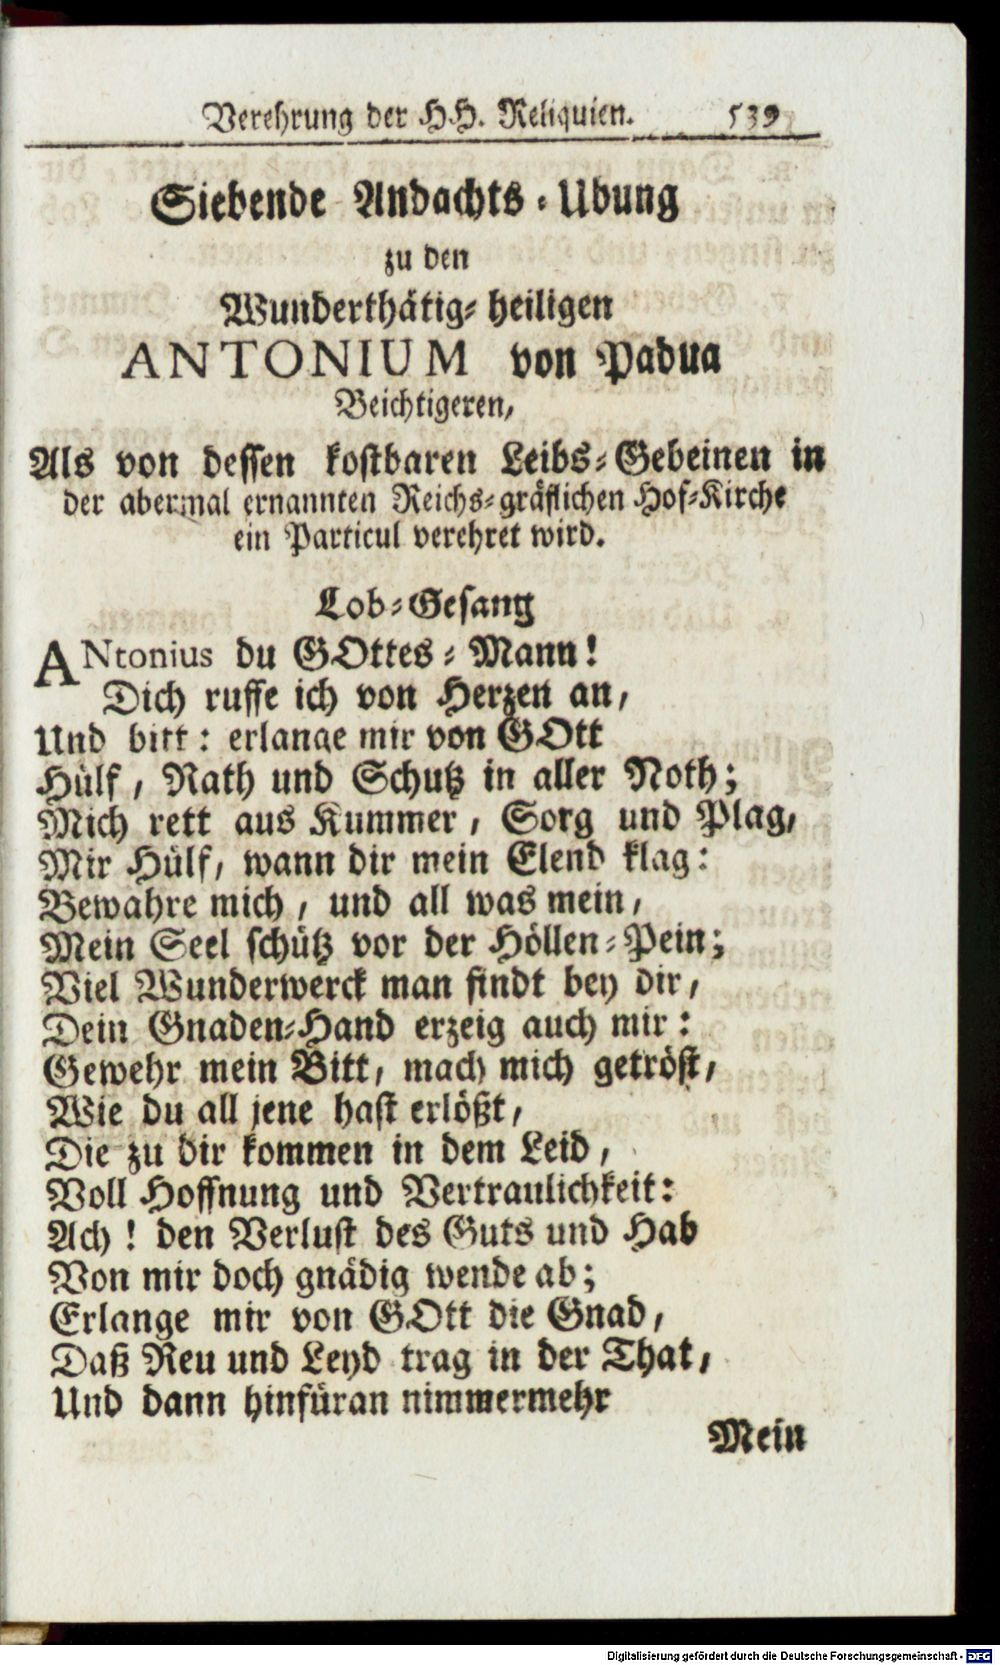 Verehrung der HH. Reliquien. 539
Siebende Andachts-Ubung
zu den
Wunderthätig-heiligen
ANTONIUM von Padua
Beichtigeren,
Als von dessen kostbaren Leibs-Gebeinen in
der abermal ernannten Reichs-gräflichen Hof-Kirche
ein Particul verehret wird.
Lob-Gesang
ANtonius du GOttes-Mann!
Dich ruffe ich von Herzen an,
Und bitt: erlange mir von GOtt
Hülf, Rath und Schutz in aller Noth;
Mich rett aus Kummer, Sorg und Plag,
Mir Hülf, wann dir mein Elend klag:
Bewahre mich, und all was mein,
Mein Seel schütz vor der Höllen-Pein;
Viel Wunderwerck man findt bey dir,
Dein Gnaden-Hand erzeig auch mir:
Gewehr mein Bitt, mach mich getröst,
Wie du all jene hast erlößt,
Die zu dir kommen in dem Leid,
Voll Hoffnung und Vertraulichkeit:
Ach! den Verlust des Guts und Hab
Von mir doch gnädig wende ab;
Erlange mir von GOtt die Gnad,
Daß Reu und Leyd trag in der That,
Und dann hinfüran nimmermehr
Mein
Digitalisierung gefördert durch die Deutsche Forschungsgemeinschaft - DFG